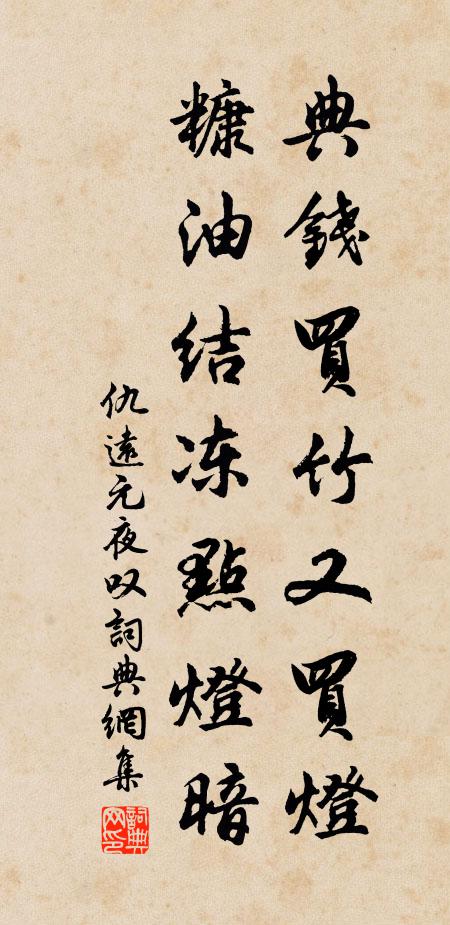 典錢買竹又買燈
糠油结冻點燈暗
仇遠元夜叹詞典網集
詞典网印